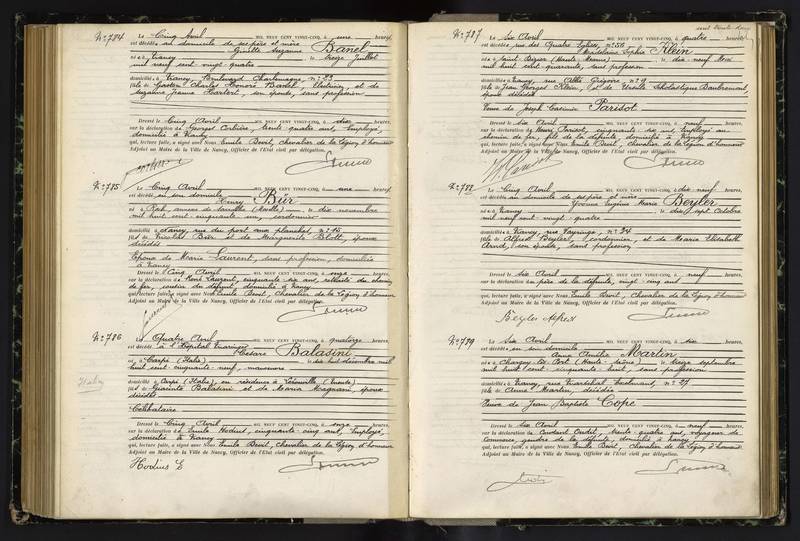 N° 784 Le Cinq Avril MIL NEUF CENT VINGT-CINQ, à une heures
est décédée au domicile de ses père et mère
Ginette Suzanne Banel
née à Nancy le treize Juillet
mil neuf cent vingt quatre
domiciliée à Nancy, Boulevard Charlemagne, n° 23
fille de Gaston Charles Honoré Banel, et de
Suzanne Jeanne son épouse, sans profession
Dressé le Cinq Avril MIL NEUF CENT VINGT-CINQ, à dix heures
sur la déclaration de Georges Corbière, trente quatre ans, employé,
domicilié à Nancy
qui, lecture faite, a signé avec Nous Emile Bevit, chevalier de la Légion d'honneur
Adjoint au Maire de la Ville de Nancy, Officier de l'Etat civil par délégation.
N° 785 Le Cinq Avril MIL NEUF CENT VINGT-CINQ, à une heures
est décédé en son domicile
Henry Bür
né à (Moselle) le dix novembre
mil huit cent cinquante un, cordonnier
domicilié à Nancy, rue du port aux planches, n° 15
fils de Nicolas Bür et de Marguerite Blott, époux
décédés
Epoux de Marie Laurent, sans profession, domiciliée
à Nancy
Dressé le Cinq Avril MIL NEUF CENT VINGT-CINQ, à onze heures
sur la déclaration de René Laurent, cinquante six ans, retraité du chemin
de fer, cousin du défunt, domicilié à Nancy
qui, lecture faite, a signé avec Nous Emile Bevit, Chevalier de la Légion d'honneur
Adjoint au Maire de la Ville de Nancy, Officier de l'Etat civil par délégation.
N° 786 Le Quatre Avril MIL NEUF CENT VINGT-CINQ, à quatorze heures
est décédé à l'hôpital Maringer
Cesare Balasini
né à Carpi (Italie) le dix huit décembre mil
huit cent cinquante neuf, manœuvre
Italie
domicilié à Carpi (Italie), en résidence à
fils de Balasini et de Maria Magnani, époux
décédés
Célibataire
Dressé le Cinq Avril MIL NEUF CENT VINGT-CINQ, à onze heures
sur la déclaration de Emile Hodius, cinquante cinq ans, employé,
domicilié à Nancy
qui, lecture faite, a signé avec Nous Emile Bevit, Chevalier de la Légion d'honneur
Adjoint au Maire de la Ville de Nancy, Officier de l'Etat civil par délégation.
Hodius E
N° 787 Le Six Avril MIL NEUF CENT VINGT-CINQ, à quatre heures
est décédée, rue des Quatre Eglises, n° 56
Madeleine Sophie Klein
née à le dix neuf Mai
mil huit cent quarante, sans profession
domiciliée à Nancy, rue Abbé Grégoire, n° 9
fille de Jean Georges Klein, et de Ursule Scholastique
époux décédés
Veuve de Joseph Casimir Parisot
Dressé le Six Avril MIL NEUF CENT VINGT-CINQ, à neuf heures
sur la déclaration de Henri Parisot, cinquante six ans, employé au
chemin de fer, fils de la défunte, domicilié à Nancy
qui, lecture faite, a signé avec Nous Emile Bevit, Chevalier de la Légion d'honneur
Adjoint au Maire de la Ville de Nancy, Officier de l'Etat civil par délégation.
N° 788 Le Cinq Avril MIL NEUF CENT VINGT-CINQ, à dix neuf heures
est décédée au domicile de ses père et mère
Yvonne Eugénie Marie Beyler
née à Nancy le dix sept Octobre
mil neuf cent vingt quatre
domiciliée à Nancy, rue n° 24
fille de Alfred Beyler, cordonnier, et de Marie Elisabeth
son épouse, sans profession
Dressé le Six Avril MIL NEUF CENT VINGT-CINQ, à neuf heures
sur la déclaration du père de la défunte, vingt cinq ans
qui, lecture faite, a signé avec Nous Emile Bevit, Chevalier de la Légion d'honneur
Adjoint au Maire de la Ville de Nancy, Officier de l'Etat civil par délégation.
Beyler Alfred
N° 789 Le Six Avril MIL NEUF CENT VINGT-CINQ, à six heures
est décédée en son domicile
Anne Amélie Martin
née à (Haute-Saône) le treize septembre
mil huit cent cinquante huit, sans profession
domiciliée à Nancy, rue n° 27
fille de Anne Martin, décédée
Veuve de Jean Baptiste Cope
Dressé le Six Avril MIL NEUF CENT VINGT-CINQ, à neuf heures
sur la déclaration de Constant trente quatre ans, voyageur de
commerce, gendre de la défunte, domicilié à Nancy
qui, lecture faite, a signé avec Nous Emile Bevit, Chevalier de la Légion d'honneur
Adjoint au Maire de la Ville de Nancy, Officier de l'Etat civil par délégation.